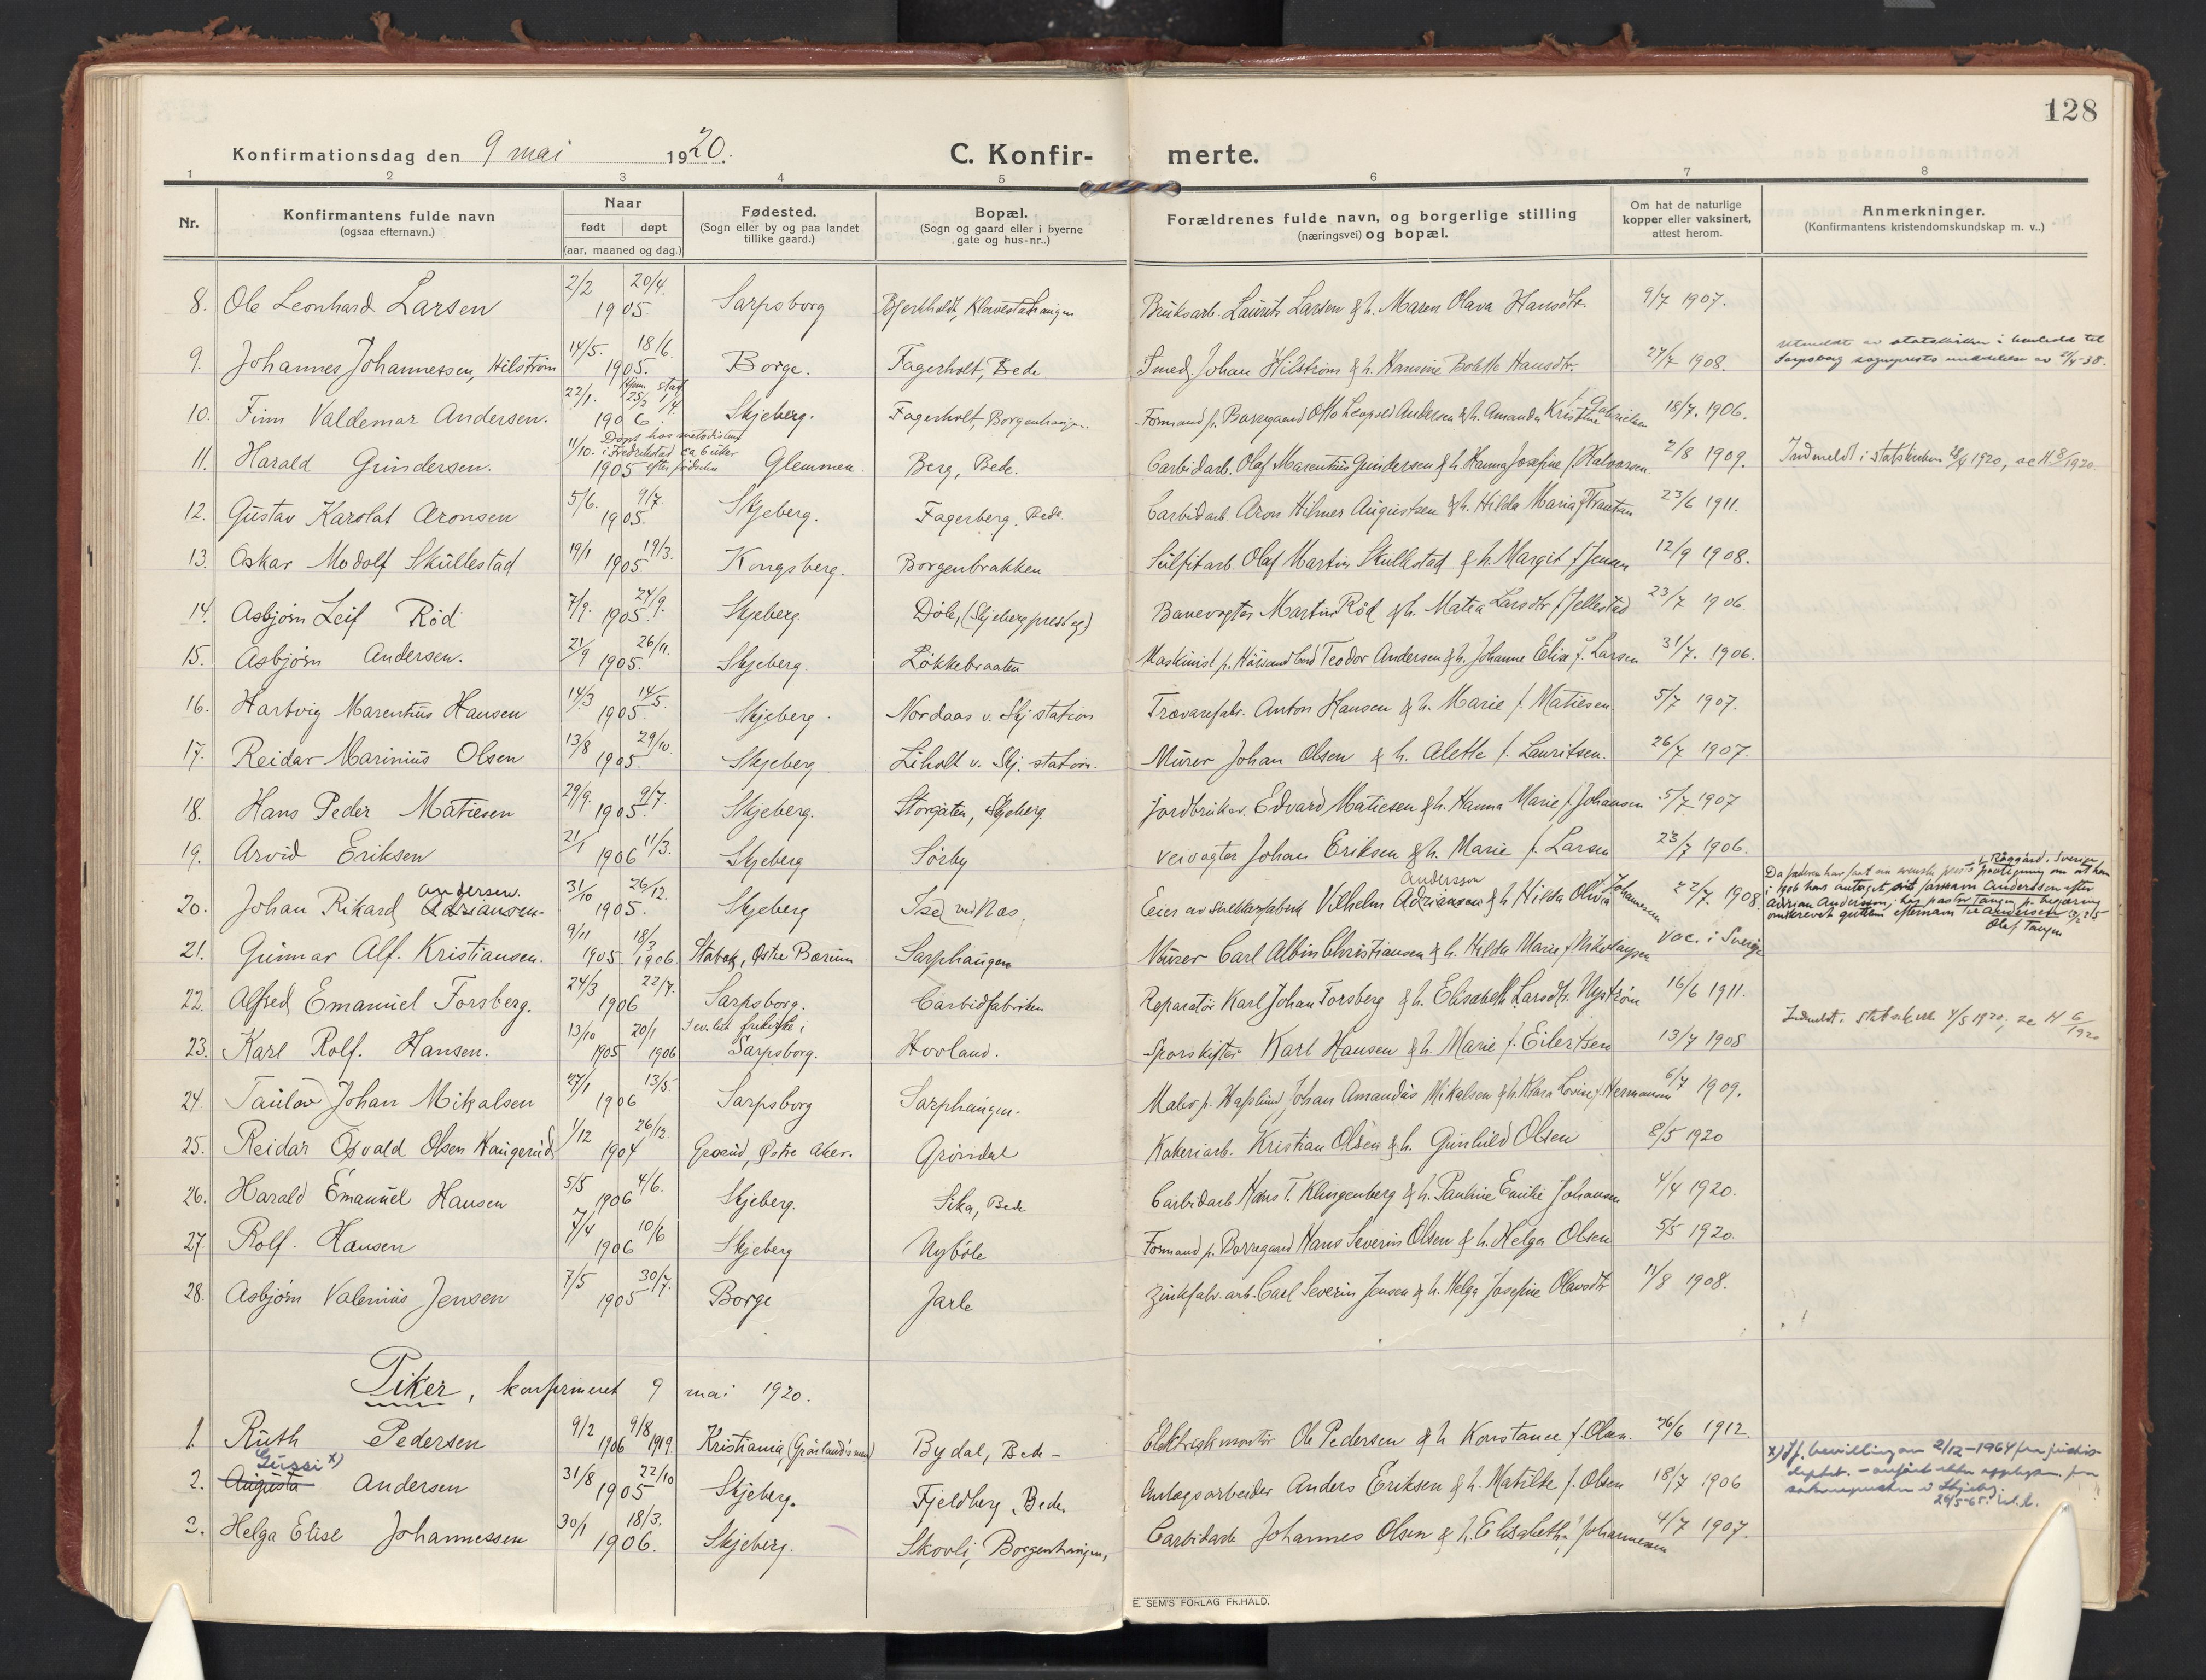 128
Konfirmationsdag den 9 mai 1920. C. Konfir- merte.
1 2 3 4 5 6 7 8
Nr. Konfirmantens fulde navn (ogsaa efternavn.) Naar født døpt (aar, maaned og dag.) Fødested. (Sogn eller by og paa landet tillike gaard.) Bopæl. (Sogn og gaard eller i byerne gate og hus-nr..) Forældrenes fulde navn, og borgerlige stilling (næringsvei) og bopæl. Om hat de naturlige kopper eller vaksinert, attest herom. Anmerkninger. (Konfirmantens kristendomskundskap m. v..)
8. Ole Leonhard Larsen 2/2 20/4. 1905. Sarpsborg Bjerkholdt, Klavestadhaugen Bruksarb. Laurits Larsen & h. Maren Olava Hansdtr. 9/7 1907.
9. Johannes Johannessen, Hilström 14/5. 18/6. 1905. Borge. Fagerholt, Bede Smed. Johan Hilström & h. Hansine Bolette Hansdtr. 27/7 1908. Utmeldt av statskirken i henhold til
Sarpsborg sogneprests meddelelse av
10. Finn Valdemar Andersen. 22/1. 1906. Skjeberg. Fagerholt, Borgenhaugen. Formand p. Borregaard Otto Leopold Andersen & h. Amanda Kristine 18/7. 1906.
11. Harald Gundersen. 11/10. Døpt hos metodisterne i Fredrikstad ca 6 uker efter fødselen 1905 Glemmen Berg, Bede. Carbidarb. Olaf Marentius Gundersen & h. Hanna Josefine f. Halvorsen. 2/8 1909. Indmeldt i statskirken 28/4 1920, se H 8/1920.
12. Gustav Karolat Aronsen 5/6. 9/7. 1905. Skjeberg. Fagerberg, Bede Carbidarb. Aron Hilmer Augustsen & h. Hilda Maria f. 23/6 1911.
13. Oskar Modolf Skullestad 19/1 19/3. 1905. Kongsberg. Borgenbrakken Sulfitarb. Olaf Martin Skullestad & h. Margit f. Jensen 12/9 1908.
14. Asbjörn Leif Röd 7/9. 24/9. 1905. Skjeberg. Döle, (Skjeberg presteg.) Banevogter Martin Röd & h. Matea Larsdtr f. Jellestad 23/7 1906.
15. Asbjörn Andersen. 21/9 26/11. 1905. Skjeberg. Lökkebraaten Maskinist p. Teodor Andersen & h. Johanne Elise f. Larsen 31/7. 1906.
16. Hartvig Marentius Hansen 14/3 14/5. 1905. Skjeberg. Nordaas v. Skj station Trævarefabr. Anton Hansen & h. Marie f. Matiesen. 5/7 1907.
17. Reidar Marinius Olsen 13/8 29/10. 1905. Skjeberg Liholt v. Skj. station. Murer Johan Olsen & h. Alette f. Lauritsen. 26/7 1907.
18. Hans Peder Matiesen 29/9. 9/7. 1905. Skjeberg. Storgaten, Skjeberg Jordbruker. Edvard Matiesen & h. Hanna Marie f. Johansen 5/7 1907
19. Arvid Eriksen 21/1 11/3. 1906 Skjeberg Sörby Veivogter Johan Eriksen & h. Marie f. Larsen 23/7 1906.
20. Johan Rikard Adriansen. Andersen. 31/10 26/12. 1905. Skjeberg Ise ved Næs. Eier av Vilhelm Adriansen Andersson & h. Hilda Olivia Johannesen 22/7. 1908. Da faderen har faat en svensk prests paategning om at han
i 1906 hans antaget sit farsnavn Anderssen efter
Adrian Andersson, har pastor Tangen p. begjæring
omskrevet guttens efternavn til Andersen
Olaf Tangen
21. Gunnar Alf. Kristiansen. 9/11 1905. 18/3 1906 Stabek, Østre Bærum Sarphaugen Murer Carl Albin Christiansen & h. Hilda Marie f. Nikolaysen Vac. i Sverige
22. Alfred Emanuel Forsberg. 24/3 22/7. 1906 Sarpsborg. Carbidfabriken Reparatör Karl Johan Forsberg & h. Elisabeth Larsdtr. Nyström 16/6 1911.
23. Karl Rolf. Hansen. 13/10 1905 20/1 1906 I ev. luth frikirke i Sarpsborg. Hovland. Sporskifter Karl Hansen & h. Marie f. Eilertsen 13/7 1908 Indmeldt i statskirke 4/5 1920, se H 6/1920
24. Taulov Johan Mikalsen 27/1 13/5. 1906 Sarpsborg Sarphaugen. Maler p. Hafslund Johan Amandus Mikalsen & h. Klara Lovise f. Hermansen 6/7 1909.
25. Reidar Osvald Olsen Haugerud 1/12 26/12. 1904 Grorud, Østre Aker. Gröndal Kokeriarb. Kristian Olsen & h. Gunhild Olsen 8/5 1920
26. Harald Emanuel Hansen 5/5 4/6. 1906 Skjeberg. Sika, Bede Carbidarb Hans T. Klingenberg & h. Pauline Emilie Johansen 4/4 1920.
27. Rolf. Hansen 7/4 10/6 1906 Skjeberg Nyböle Formand p. Borregaard Hans Severin Olsen & h. Helga Olsen 5/5 1920.
28. Asbjörn Valenius Jensen 7/5 30/7. 1905 Borge Jarle Zinkfabr. arb. Carl Severin Jensen & h. Helga Josefine Olavsdtr 11/8 1908.
Piker, konfirmeret 9 mai 1920.
1. Ruth Pedersen 9/2 1906 9/8 1919. Kristiania, (Grönlands men) Bydal, Bede Elektriskmontör Ole Pedersen & h Konstance f. Olsen. 26/6 1912.
Gussi x)
2. Augusta Andersen 31/8 22/10 1905 Skjeberg. Fjeldberg, Bede Anlægsarbeider Anders Eriksen & h. Matilde f. Olsen 18/7 1906 x) Jf. bevilling av 2/12-1964 fra justis-
deptet. - anfört etter
sokneprest i Skjeberg.
26/5-65.
3. Helga Elise Johannessen 30/1 18/3. 1906. Skjeberg. Skovli, Borgenhaugen, Carbidarb Johannes Olsen & h. Elisabeth f. Johannesen 4/7 1907.
E. SEM'S FORLAG FR.HALD.